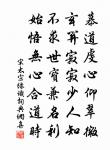 慕道虔心仰翠微
玄寂寂少人知
不求世寶兼名利
始悟無心合道時
宋太宗緣識詩